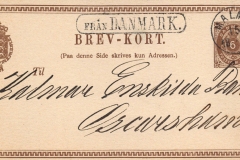 FRÅN DANMARK.
BREV-KORT.
(Paa denne Side skrives kun Adressen.)
Til
Kalmar Enskilda
Oscarshamn
6